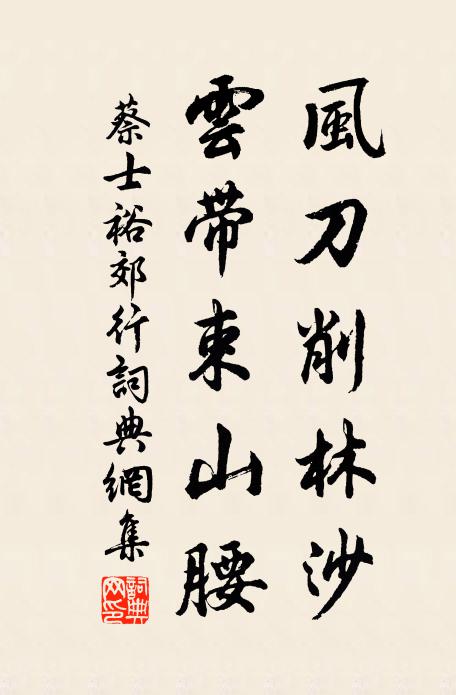 風刀削林沙
雲帶束山腰
蔡士裕郊行詞典網集
詞典
网印